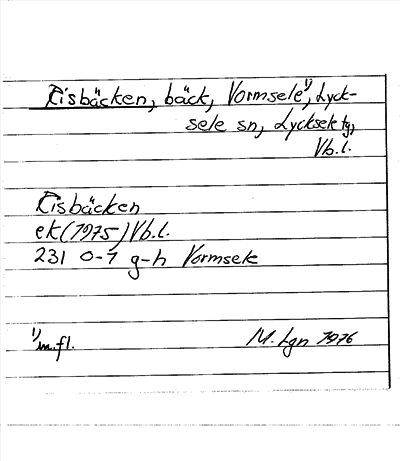 Risbäcken, bäck, Vormsele¹⁾, Lyck-
sele sn, Lycksele tg,
Vb.l.
Risbäcken
ek (1975) Vb.l.
231 0-1 g-h Vormsele
¹⁾m.fl.
M. Lgn 1976